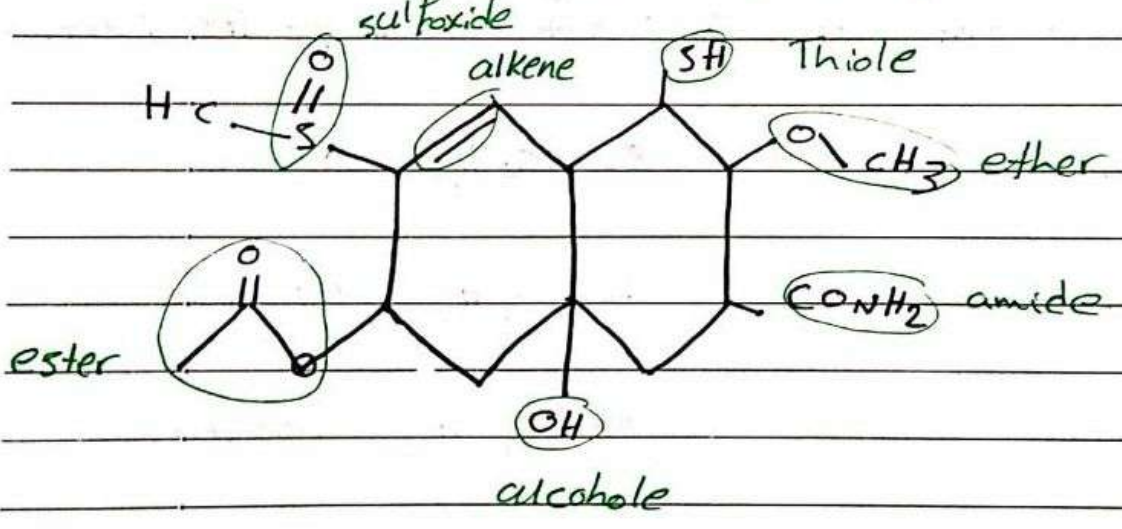 sulfoxide
O
alkene
SH Thiole
H C
S
O
CH3 ether
O
CONH2 amide
ester
O
OH
alcohole